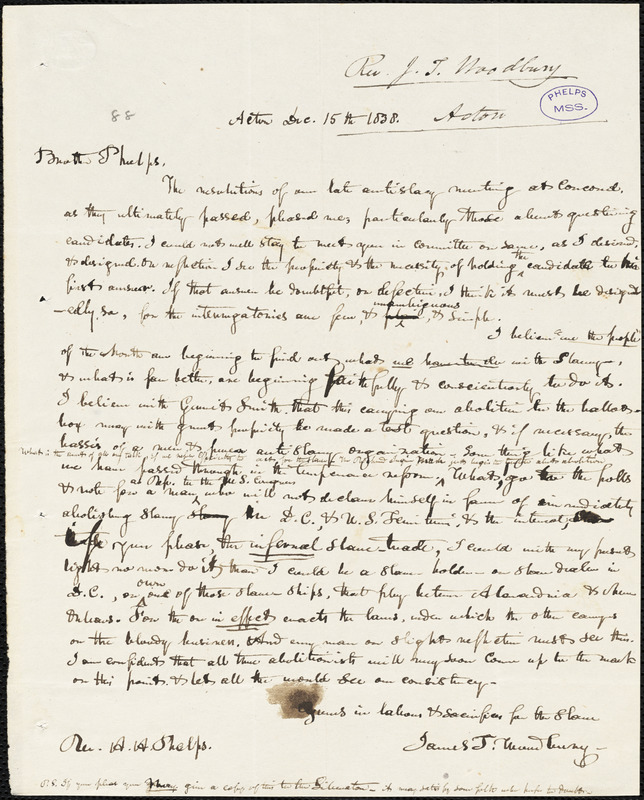 Rev. J. T. Woodbury
PHELPS
MSS.
88
Acton Dec. 15th 1838. Acton
Brother Phelps,
The resolutions of our late antislavery meeting at Concord,
as they ultimately passed, pleased me, particularly those about questioning
candidates. I could not well stay to meet again in committee on same, as I desired
& designed. On reflection I see the propriety & the necessity of holding the candidate to his
first answer. If that answer be doubtful, or defective, I think it must be designedly
so, for the interrogatories are few, & unambiguous, & simple.
I believe we the people
of the North are beginning to find out, what we have to do with Slavery,
& what is far better, are beginning faithfully & conscientiously to do it.
I believe with Gerrit Smith that this carrying our abolition to the ballot-
box may with great propriety be made a test question, & if necessary, the
bassis of a new & purer anti Slavery organization. Something like what
we have passed through in the temperance reform. What, go to the polls
as Rep. to the U.S. Congress
& vote for a man, who will not declare himself in favor of immediately
abolishing Slavery in D.C., & U.S. Territories, & the internal,
or if you please, the infernal Slave trade, I could with my present
light no more do it, than I could be a Slave holder or Slave dealer in
D.C., or own one of those Slave Ships, that ply between Alexandria & New
Orleans. For the one in effect enacts the laws, under which the other carrys
on the bloody business. And any man on slight reflection must see this.
I am confident that all true abolitionists will very soon come up to the mark
on this point & let all the world see our consistency-
Yours in labours & sacrifices for the Slave
Rev. A. A. Phelps. James T. Woodbury-
P.S. If you please you may give a copy of this to the Liberator-